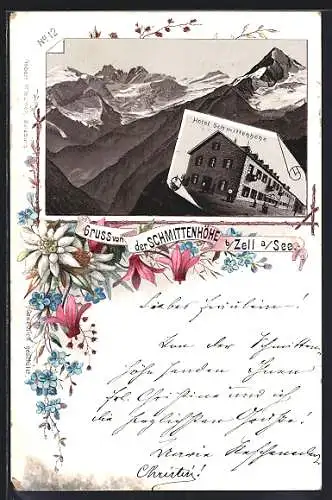 No 12
Hotel Schmittenhöhe
Gruss von der SCHMITTENHÖHE b/ Zell a/See.
Liebes Fräulein!
Von der Schmitten-
höhe senden Ihnen
Frl. Christine und ich
die herzlichsten Grüße!
Marie
Christin!